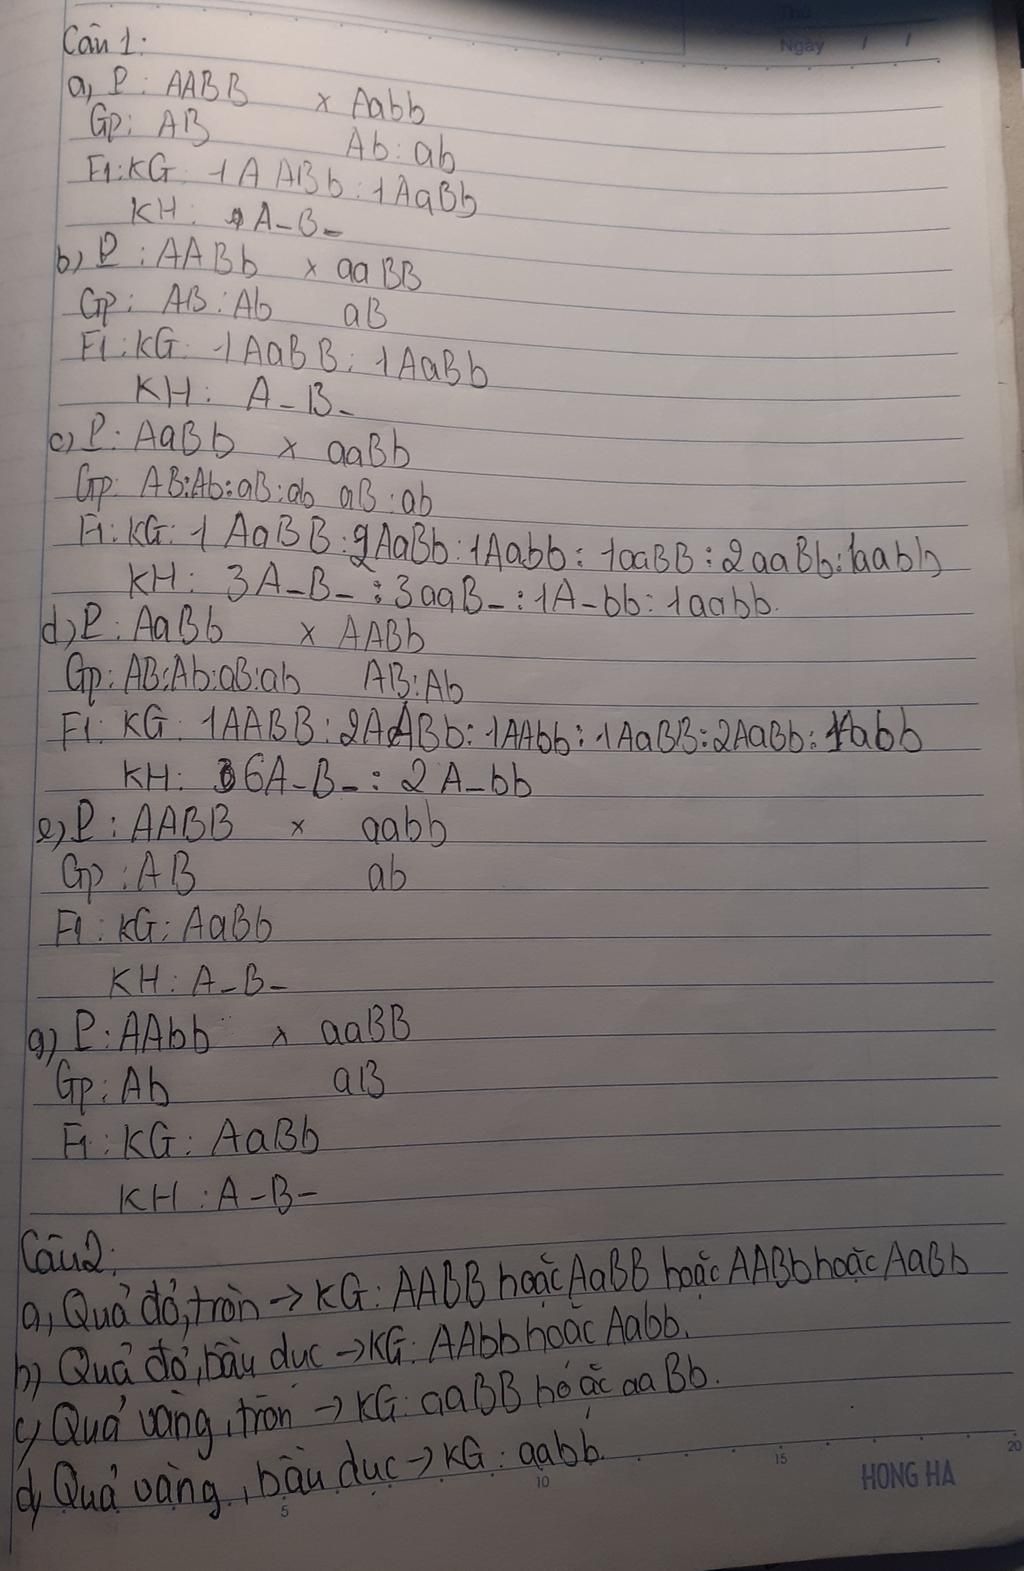 Thứ
Ngày / /
Câu 1:
a, P: AABB x Aabb
Gp: AB Ab: ab
F1: KG: 1AABb: 1AaBb
KH: A-B-
b) P: AABb x aaBB
Gp: AB: Ab aB
F1: KG: 1AaBB: 1AaBb
KH: A-B-
c) P: AaBb x aaBb
Gp: AB:Ab:aB:ab aB:ab
F1: KG: 1AaBB:2AaBb:1Aabb: 1aaBB:2aaBb:1aabb
KH: 3A-B-:3aaB-:1A-bb:1aabb.
d) P: AaBb x AABb
Gp: AB:Ab:aB:ab AB:Ab
F1: KG: 1AABB:2AABb:1AAbb:1AaBB:2AaBb:1Aabb
KH: 6A-B-: 2A-bb
e) P: AABB x aabb
Gp: AB ab
F1: KG: AaBb
KH: A-B-
g) P: AAbb x aaBB
Gp: Ab aB
F1: KG: AaBb
KH: A-B-
Câu 2:
a, Quả đỏ, tròn → KG: AABB hoặc AaBB hoặc AABb hoặc AaBb
b) Quả đỏ, bầu dục → KG: AAbb hoặc Aabb.
c) Quả vàng, tròn → KG: aaBB hoặc aaBb.
d) Quả vàng, bầu dục → KG: aabb.
5 10 15 20
HONG HA